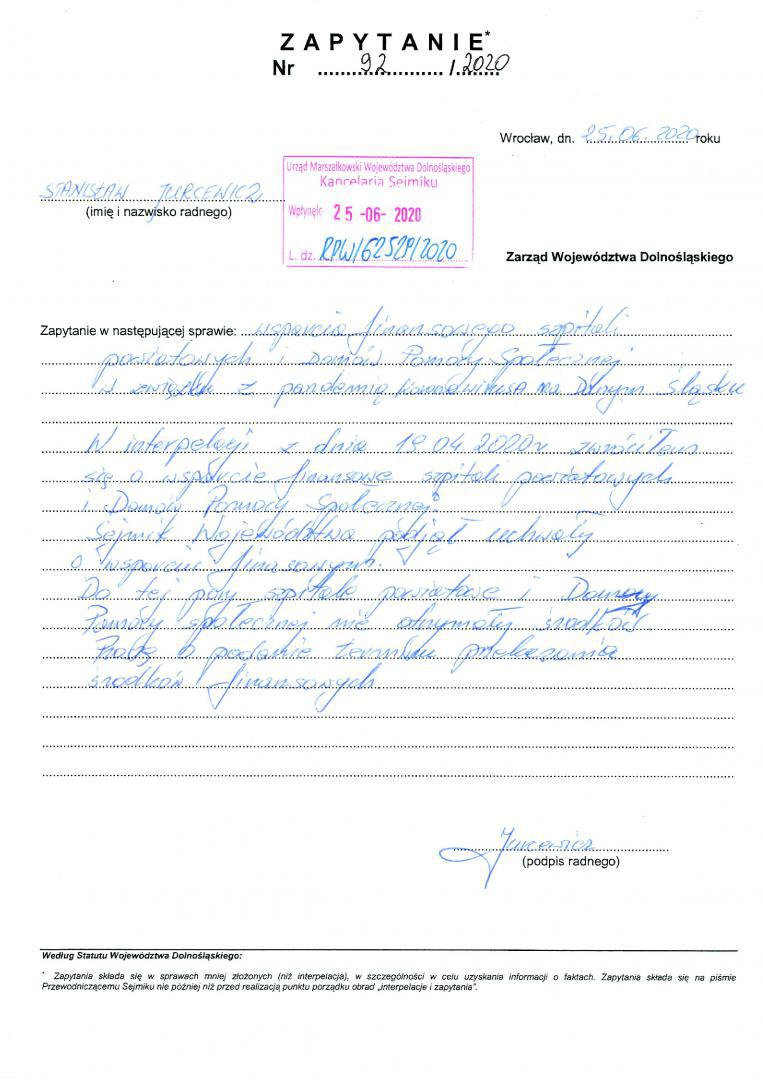 ZAPYTANIE*
Nr ......92........../.2020
Wrocław, dn. 25.06.2020 roku
STANISŁAW JURCEWICZ
(imię i nazwisko radnego)
Urząd Marszałkowski Województwa Dolnośląskiego
Kancelaria Sejmiku
Wpłynęło 25 -06- 2020
L. dz. RPW/62529/2020
Zarząd Województwa Dolnośląskiego
Zapytanie w następującej sprawie: wsparcia finansowego szpitali
powiatowych i Domów Pomocy Społecznej
w związku z pandemią koronawirusa na Dolnym Śląsku
W interpelacji z dnia 19.04.2020r zwróciłem
się o wsparcie finansowe szpitali powiatowych
i Domów Pomocy Społecznej.
Sejmik Województwa podjął uchwały
o wsparciu finansowych.
Do tej pory szpitale powiatowe i Domowy
Pomocy społecznej nie otrzymały środków
Proszę o podanie terminu przekazania
środków finansowych.
Jurcewicz
(podpis radnego)
Według Statutu Województwa Dolnośląskiego:
* Zapytania składa się w sprawach mniej złożonych (niż interpelacja), w szczególności w celu uzyskania informacji o faktach. Zapytania składa się na piśmie
Przewodniczącemu Sejmiku nie później niż przed realizacją punktu porządku obrad „interpelacje i zapytania".